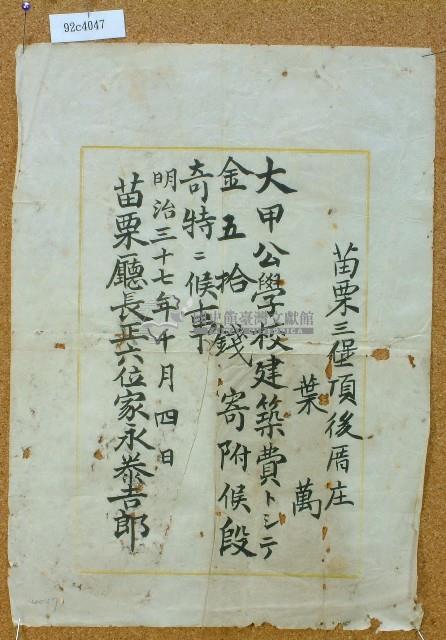 92c4047
苗栗三堡頂後厝庄
葉萬
大甲公學校建築費トシテ
金五拾錢寄附候段
奇特ニ候事
明治三十七年十月四日
苗栗廳長正六位家永泰吉郎